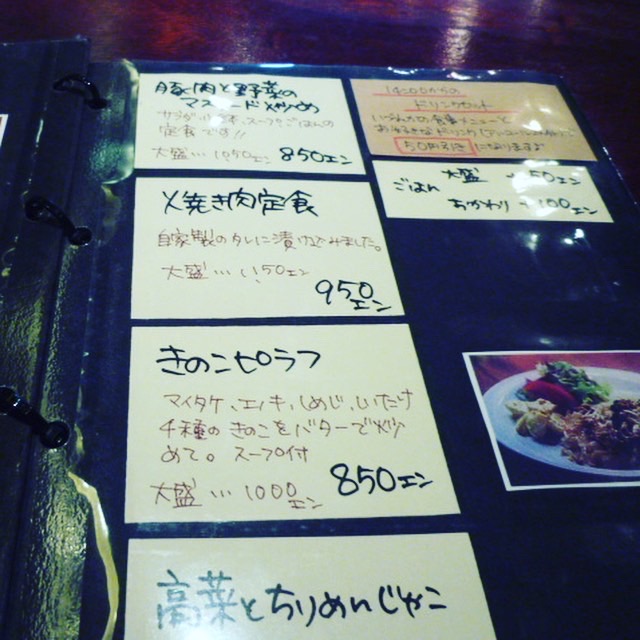 豚肉と野菜の
マスタード炒め
サラダ、小鉢、スープ、ごはんの
定食です!!
大盛…1050エン 850エン
14:00からの
ドリンクセット
お好きなドリンク
50円引き になります
ごはん 大盛 +50エン
おかわり +100エン
焼き肉定食
自家製のタレに漬け込みました。
大盛…1,150エン
950エン
きのこピラフ
マイタケ、エノキ、しめじ、しいたけ
4種のきのこをバターで炒
めて。スープ付
大盛…1000エン 850エン
高菜とちりめんじゃこ